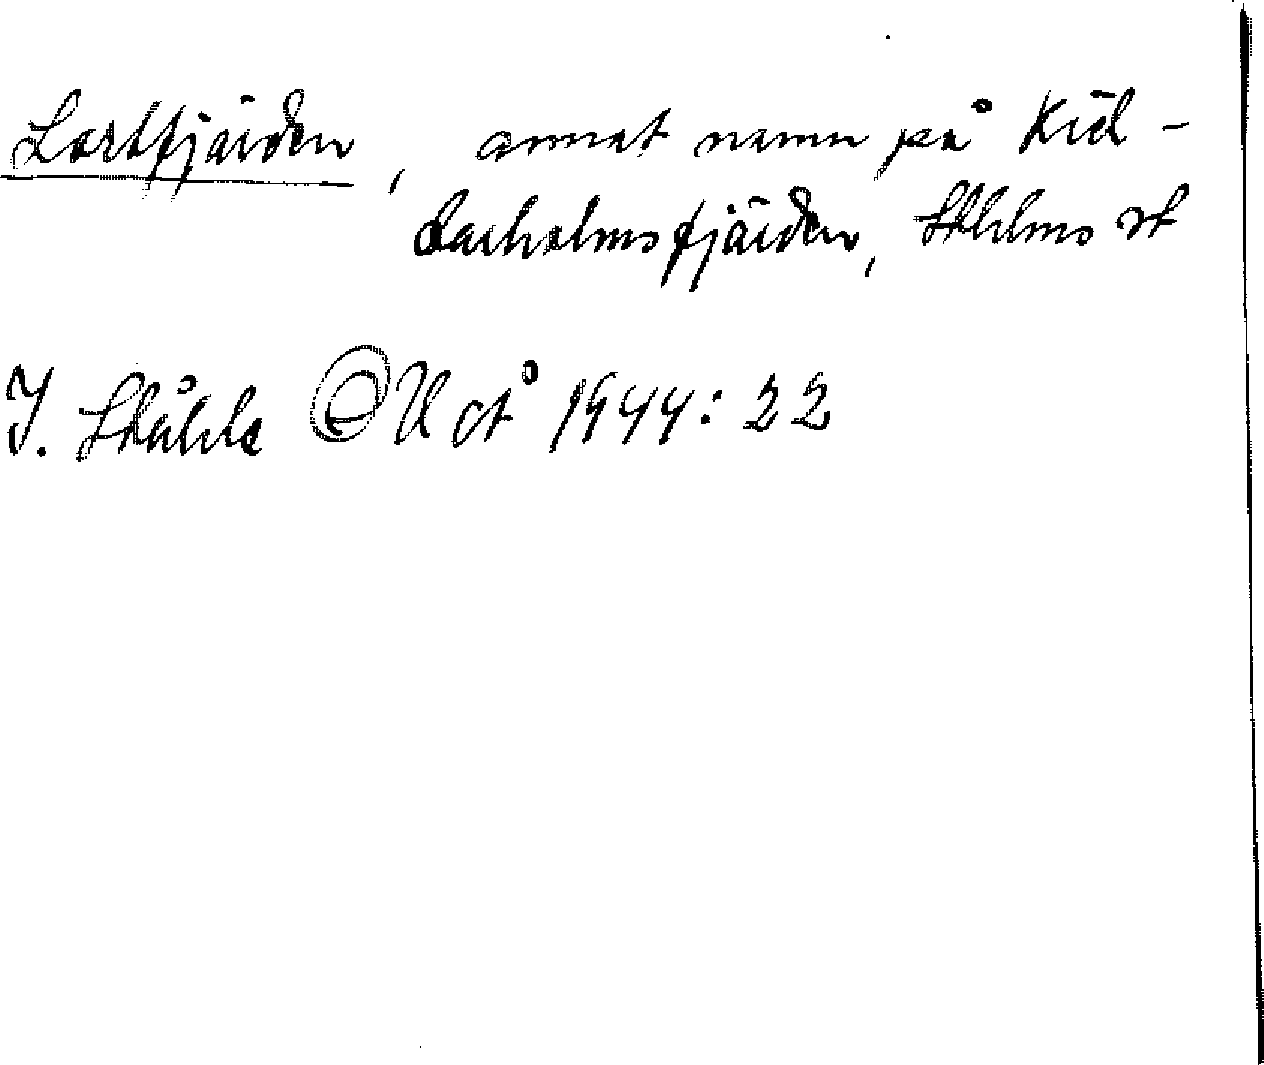 Lortfjärden, annat namn på Rid-
darholmsfjärden, Sthlms st
I. Ståhle UoÅ 1944: 22